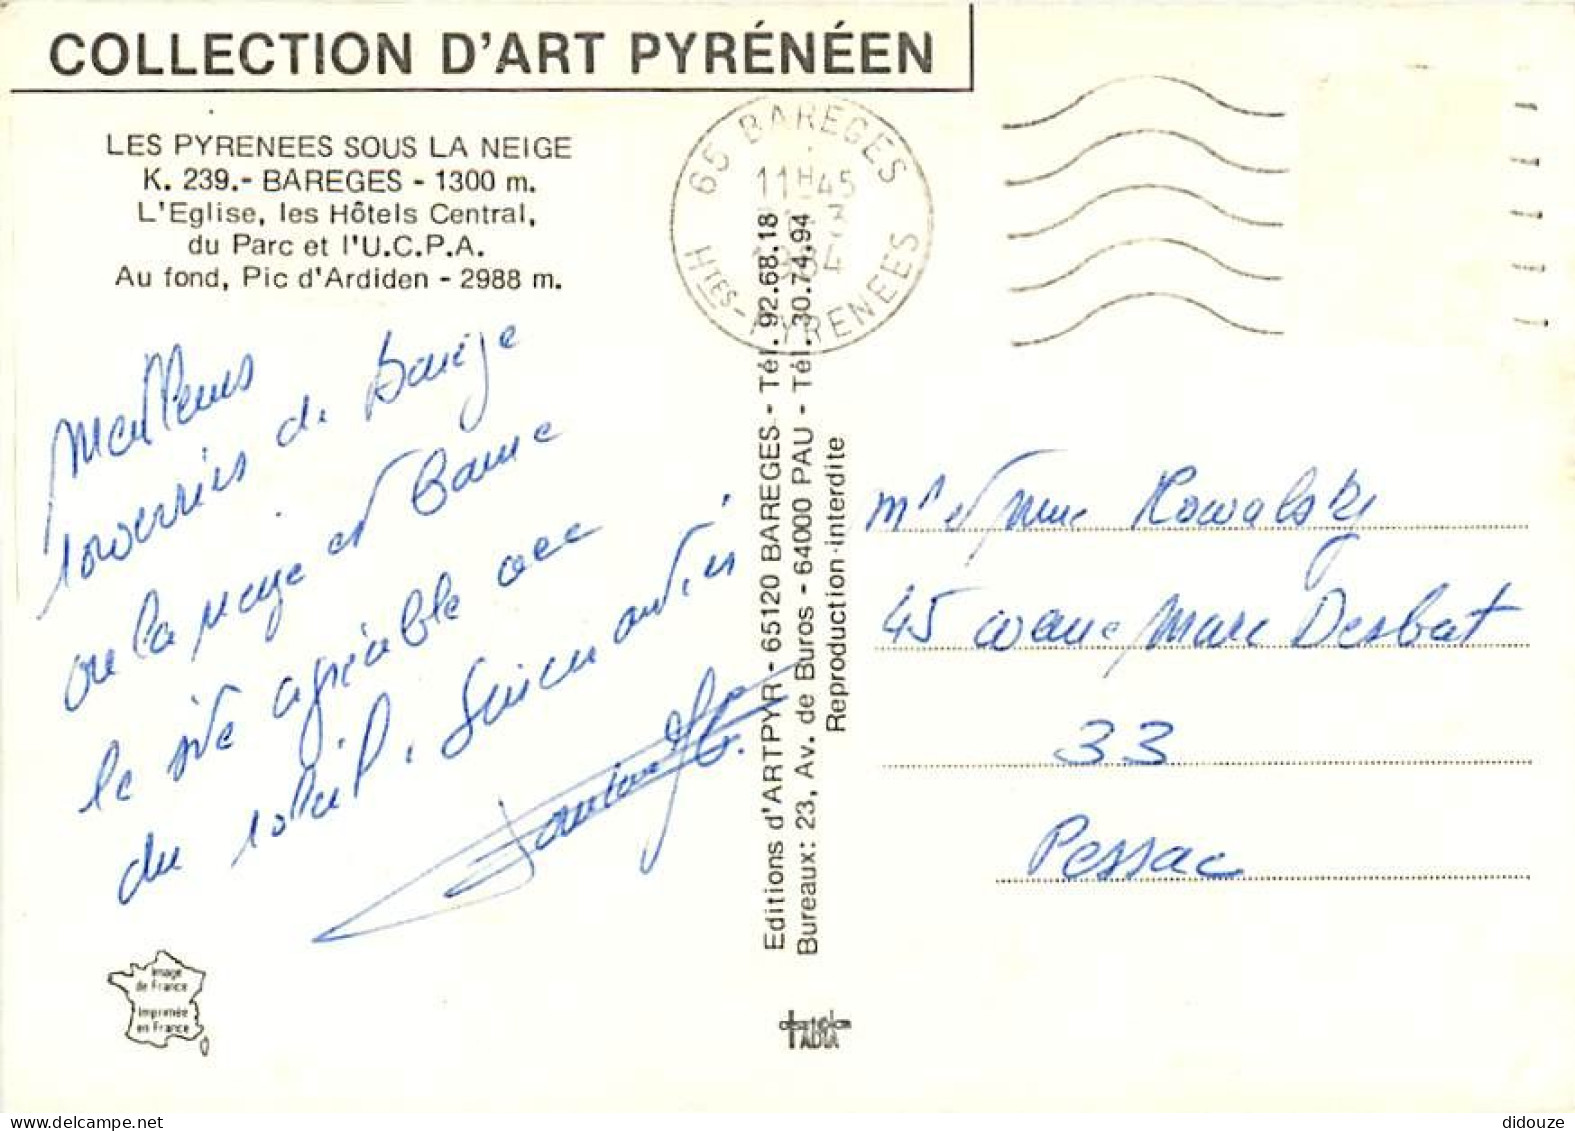 COLLECTION D'ART PYRÉNÉEN
LES PYRENEES SOUS LA NEIGE
K. 239.- BAREGES - 1300 m.
L'Eglise, les Hôtels Central,
du Parc et l'U.C.P.A.
Au fond, Pic d'Ardiden - 2988 m.
65 BAREGES
11H45
HTES-PYRENEES
Meilleurs
souvenirs de Barège
ou la neige et bonne
le site agréable avec
du soleil.
Editions d'ARTPYR - 65120 BAREGES - Tél. 92.68.18
Bureaux: 23, Av. de Buros - 64000 PAU - Tél. 30.74.94
Reproduction interdite
Mr et Mme Kowalsky
45 avenue Marc Desbat
33
Pessac
Image
de France
Imprimée
en France
IADIA
didouze